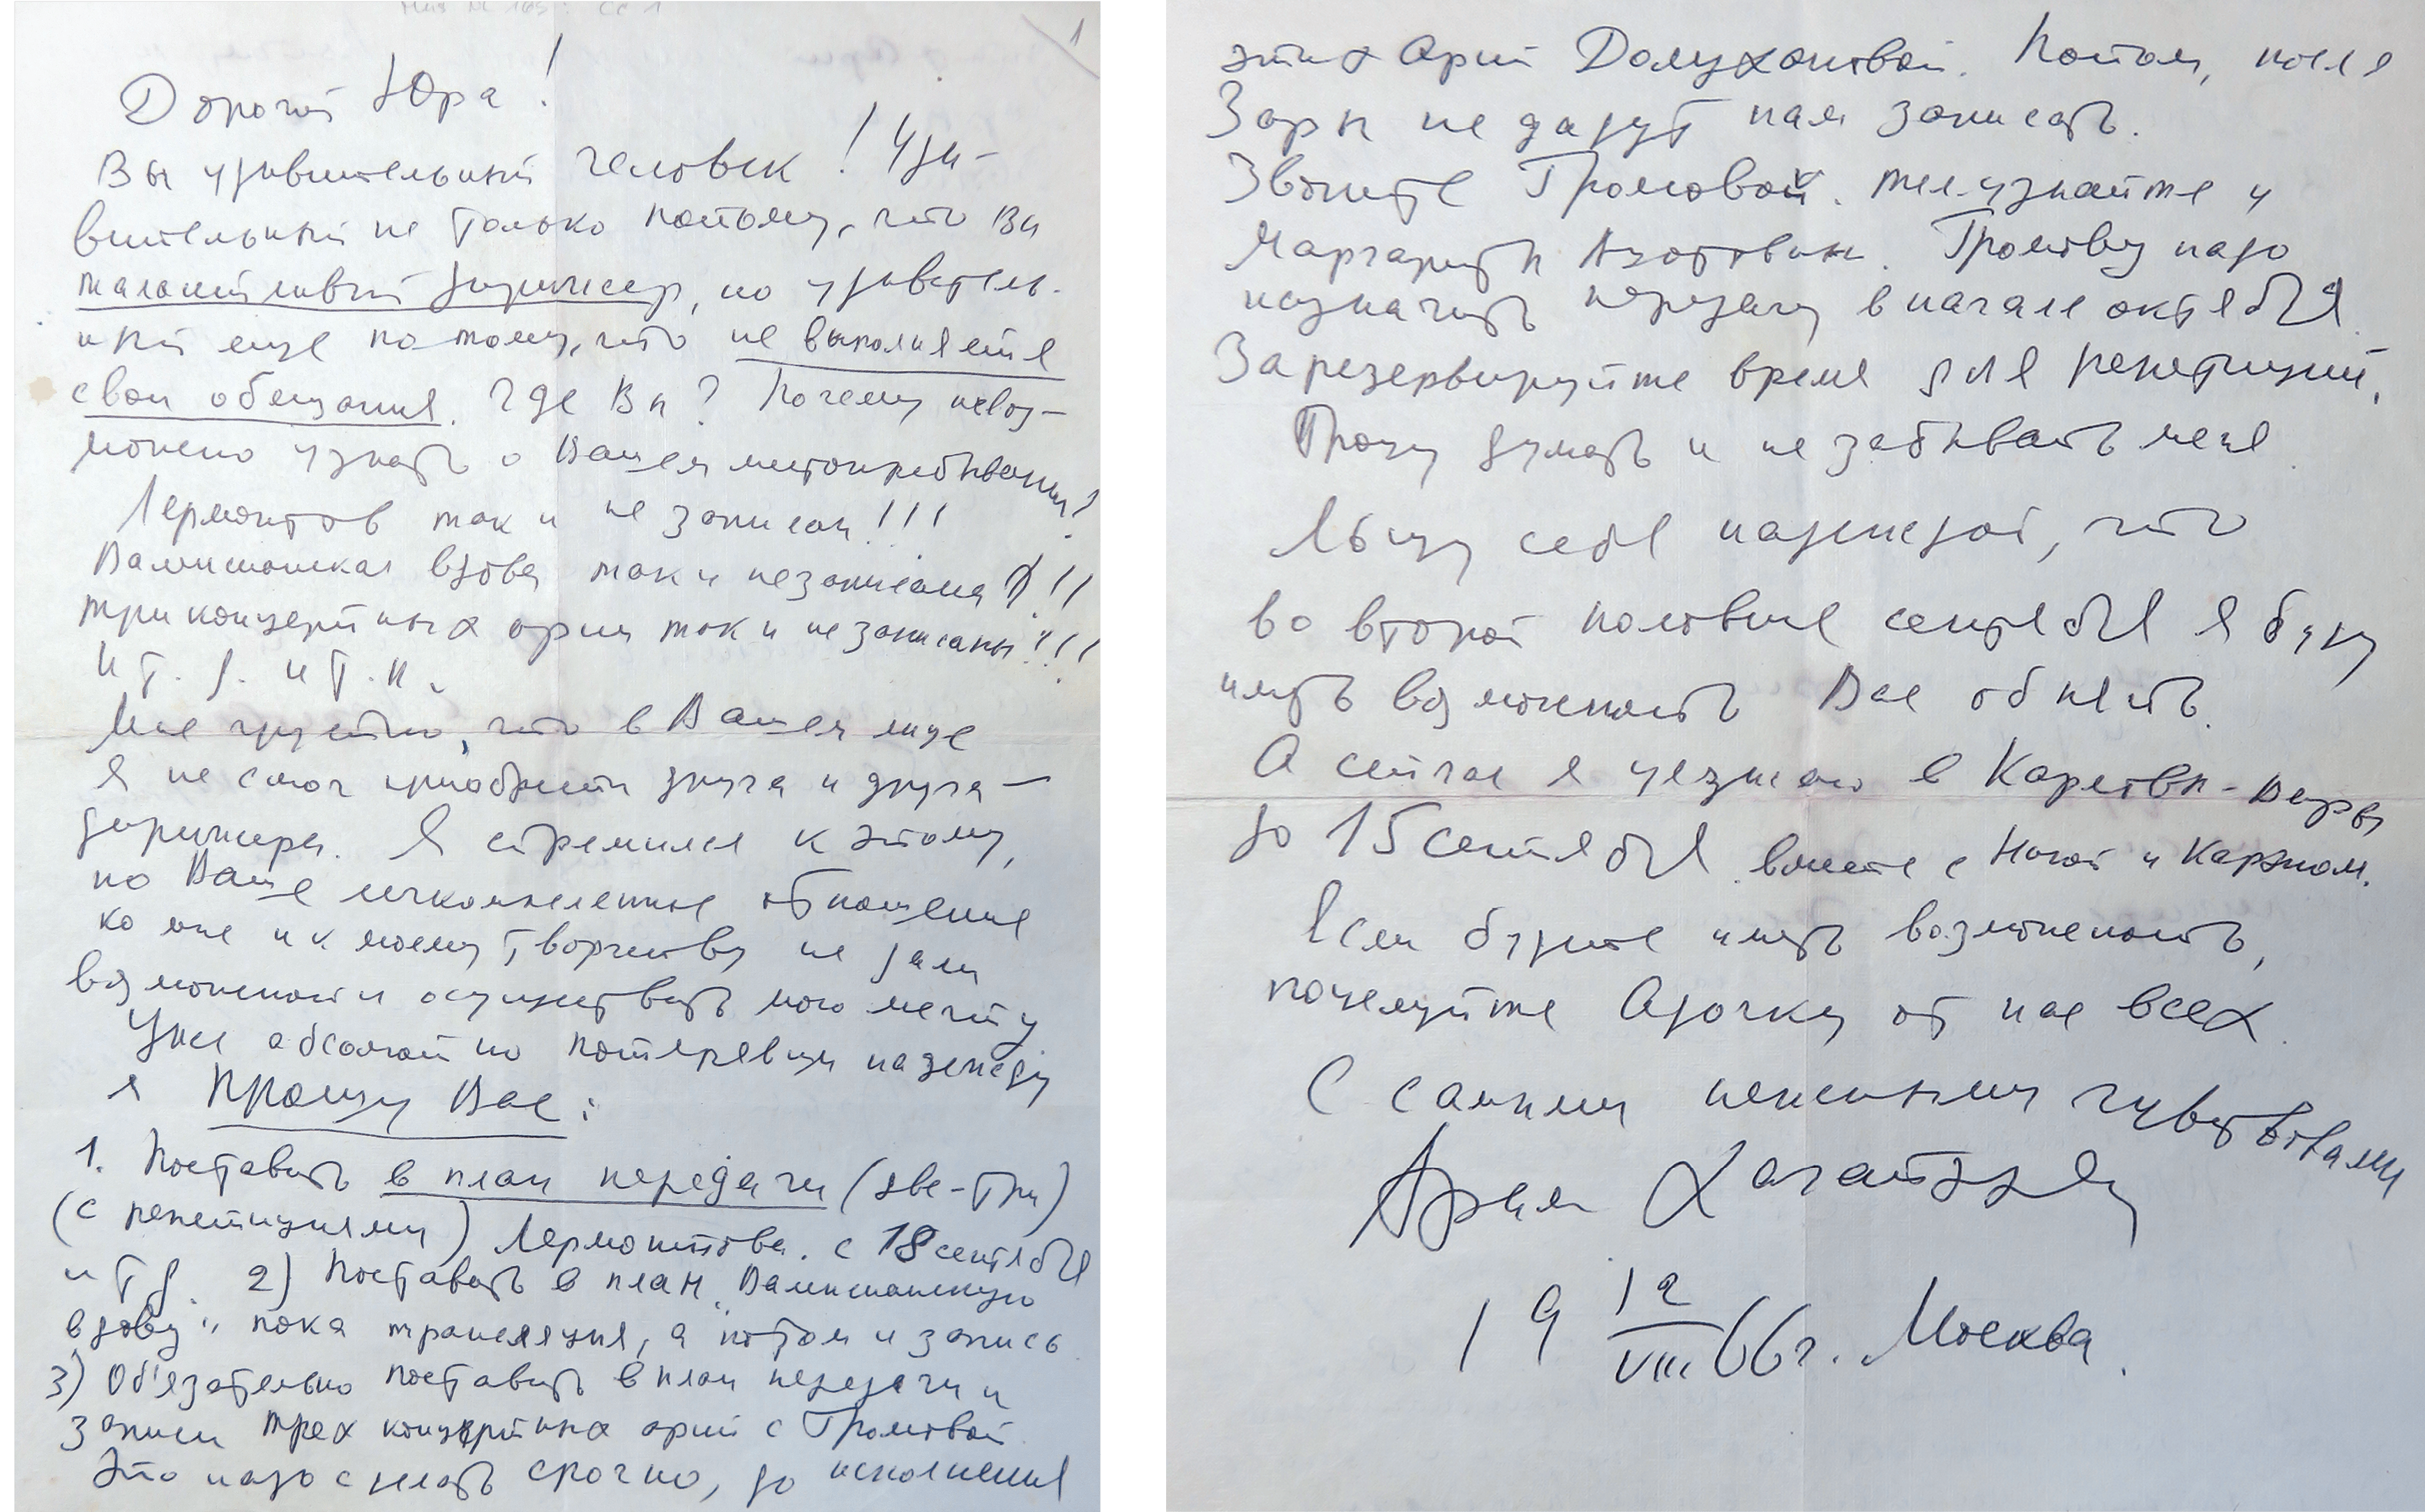 1
Дорогой Юра!
Вы удивительный человек! Уди-
вительный не только потому, что Вы
талантливый дирижер, но удивитель-
ный еще потому, что не выполняете
свои обещания. Где Вы? Почему невоз-
можно узнать о Вашем местопребывании?
Лермонтов так и не записан!!!
Валенсианская вдова так и не записана!!!
Три концертных арии так и не записаны!!!
и т. д. и т. п.
Мне грустно, что в Вашем лице
я не смог приобрести друга и друга —
дирижера. Я стремился к этому,
но Ваше отношение
ко мне и к моему творчеству не дали
возможности осуществить мою мечту
Уже абсолютно потерявши надежду
я прошу Вас:
1. Поставить в план передачи (две-три)
(с репетициями) Лермонтова. с 18 сентября
и т д. 2) Поставить в план „Валенсианскую
вдову" пока трансляция, а потом и запись
3) Об'язательно поставить в план передачи и
записи трех концертных арий с Громовой
Это надо сделать срочно, до исполнения
этих арий Долухановой. Потом, после
Зары не дадут нам записать.
Звоните Громовой. тел. узнайте у
Маргариты. Громову надо
назначить передачу в начале октября
Зарезервируйте время для репетиций.
Прошу думать и не забывать меня.
Льщу себя надеждой, что
во второй половине сентября я буду
иметь возможность Вас обнять.
А сейчас я уезжаю в Карловы-Вары
до 15 сентября вместе с Ниной и Кареном.
Если будете иметь возможность,
поцелуйте Адочку от нас всех.
С самыми нежными чувствами
Арам Хачатурян
19 12/VIII 66 г. Москва.